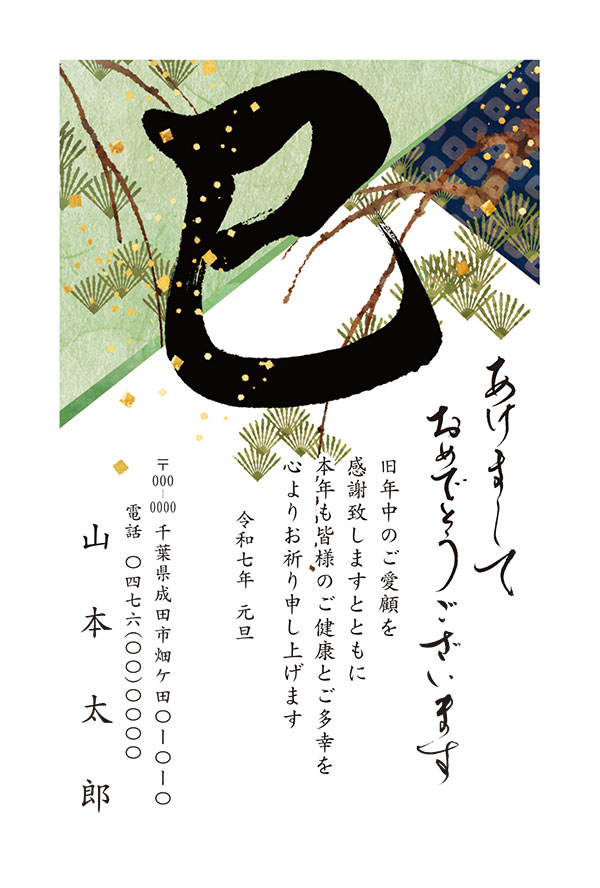 巳
あけまして
おめでとうございます
旧年中のご愛顧を
感謝致しますとともに
本年も皆様のご健康とご多幸を
心よりお祈り申し上げます
令和七年 元旦
〒000-0000 千葉県成田市畑ケ田〇ー〇ー〇
電話 〇四七六(〇〇)〇〇〇〇
山本太郎